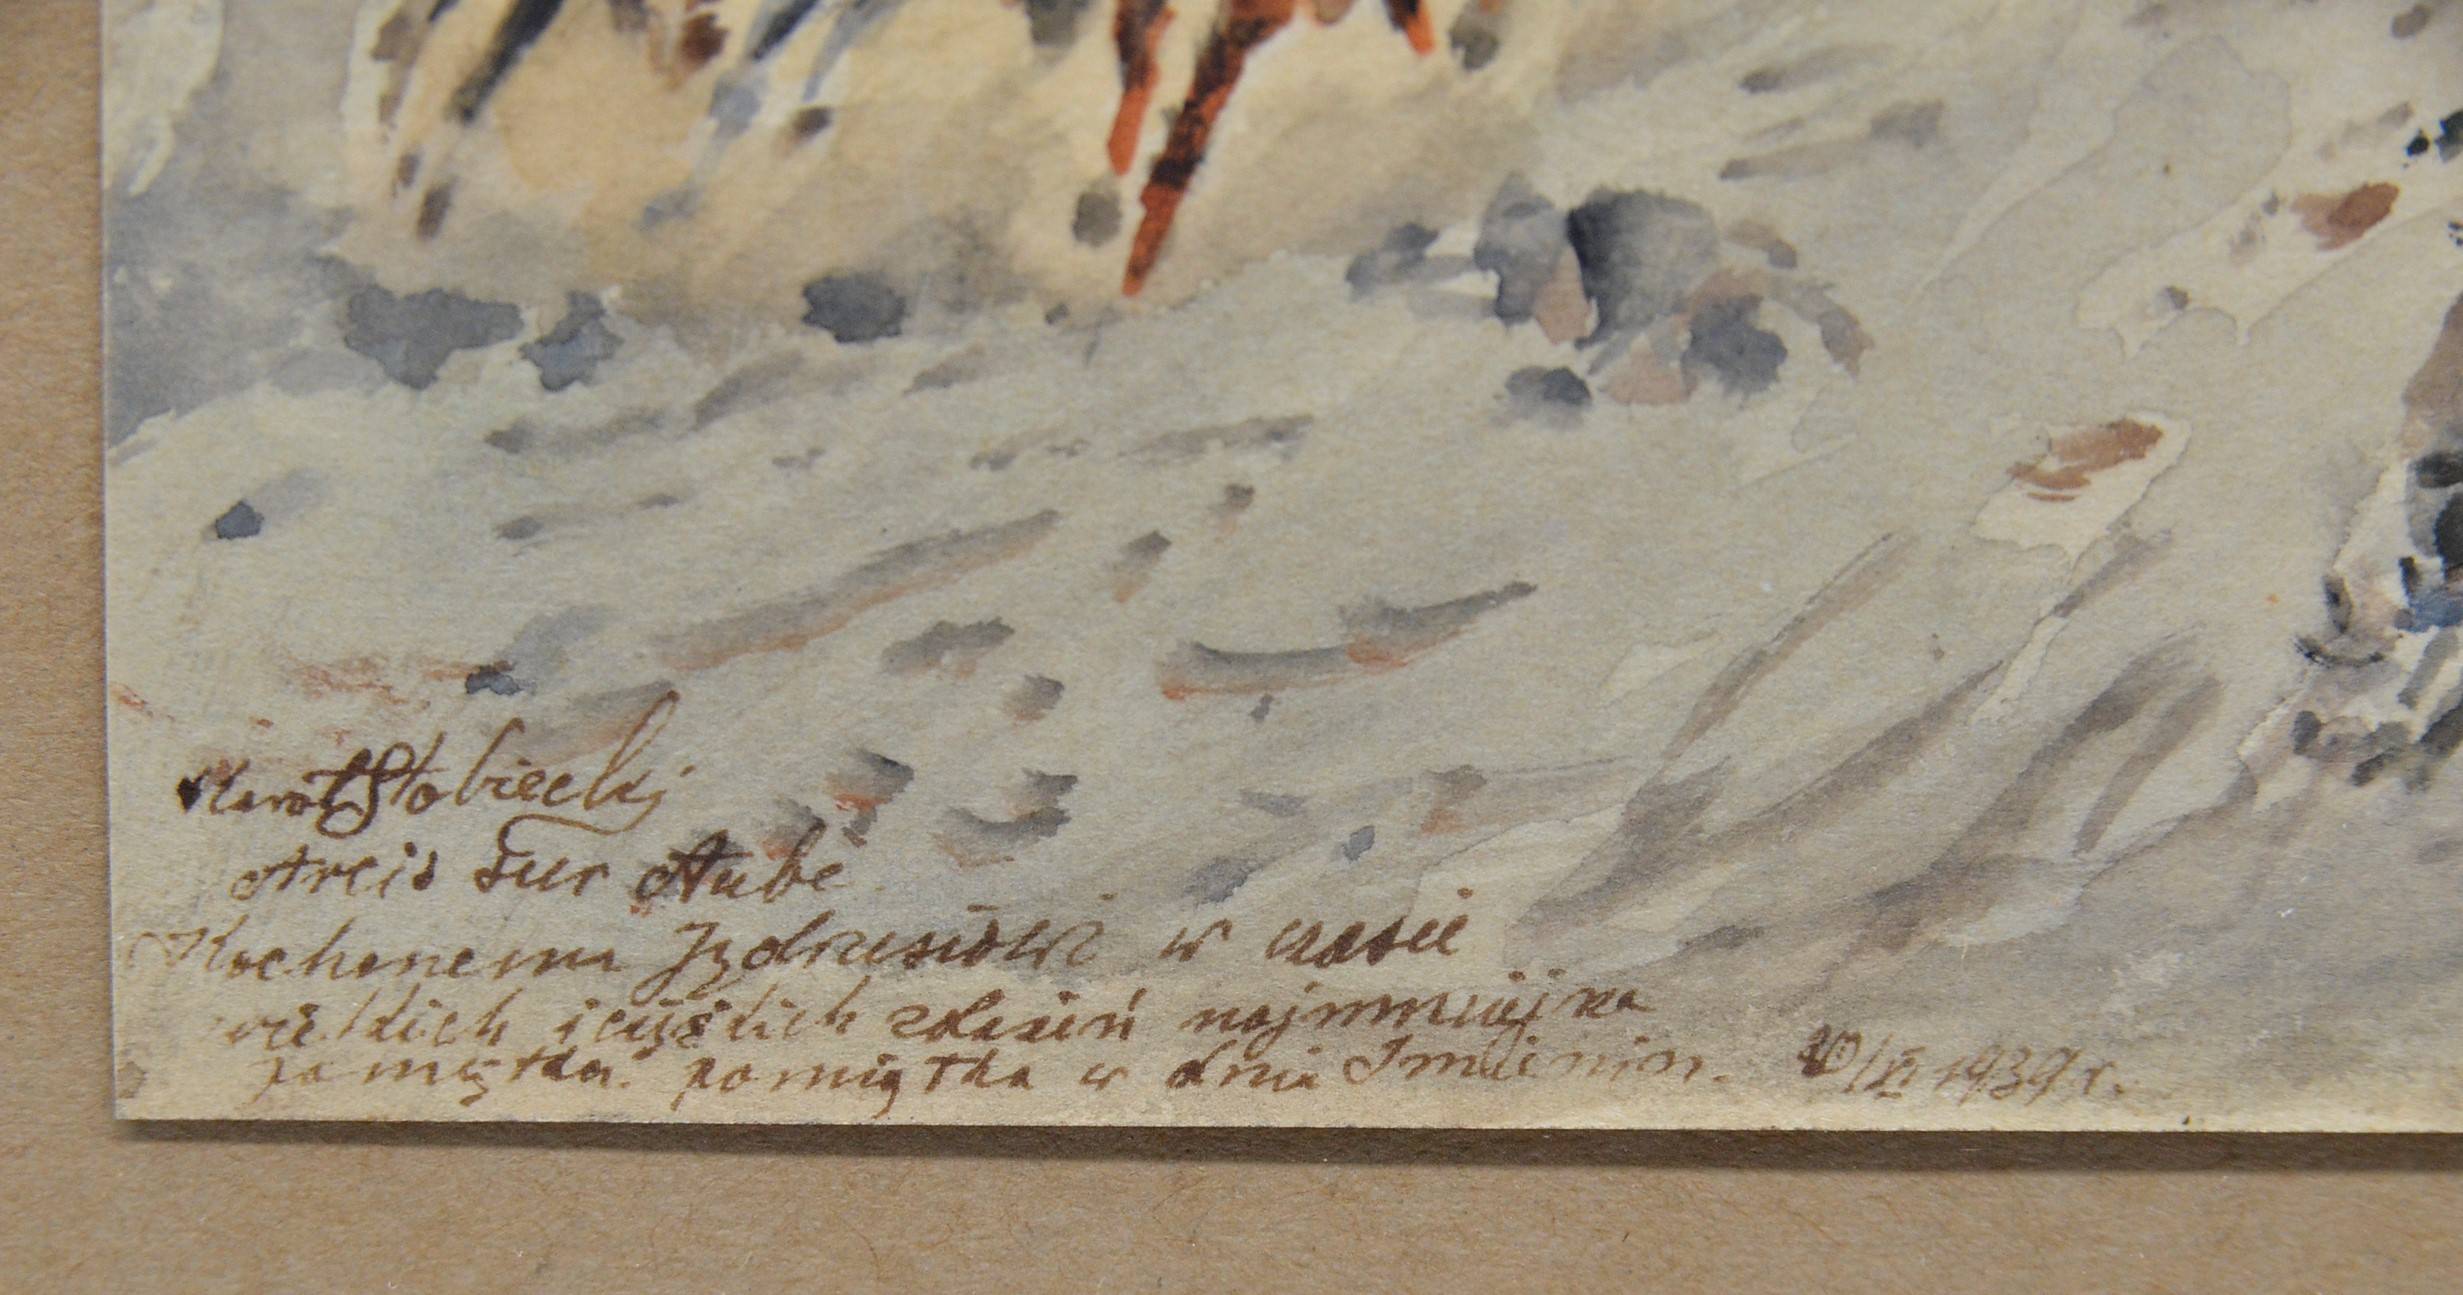 Karol Stobiecki
Arcis sur Aube
Kochanemu Jędrusiowi w czasie
wielkich i ciężkich zdarzeń najmniejsza
pamiątka w dniu Imienin. 30/XI 1939 r.